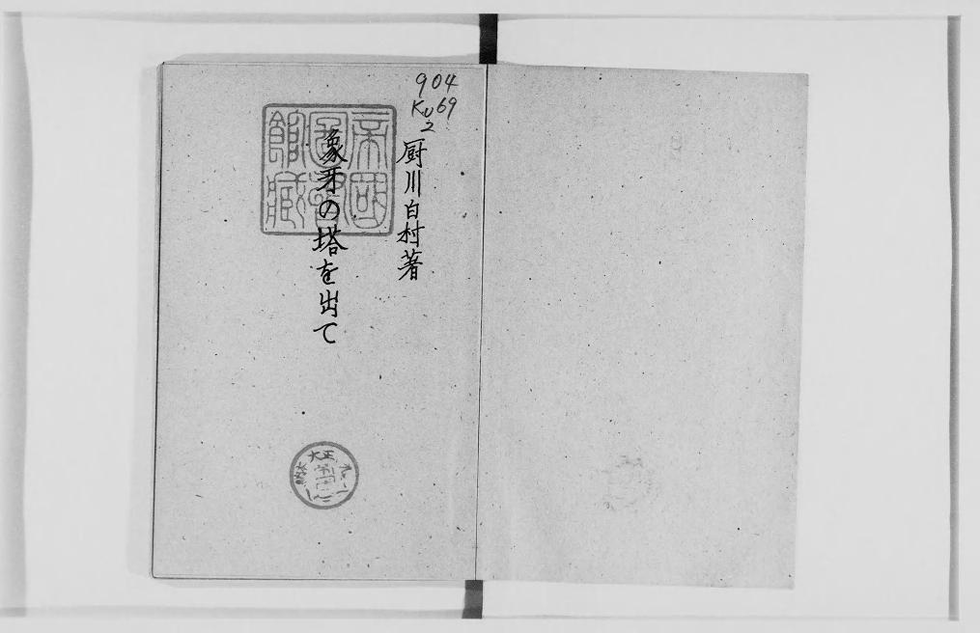 904
Ku69
2
厨川白村著
象牙の塔を出て
帝國
圖書
館藏
大正